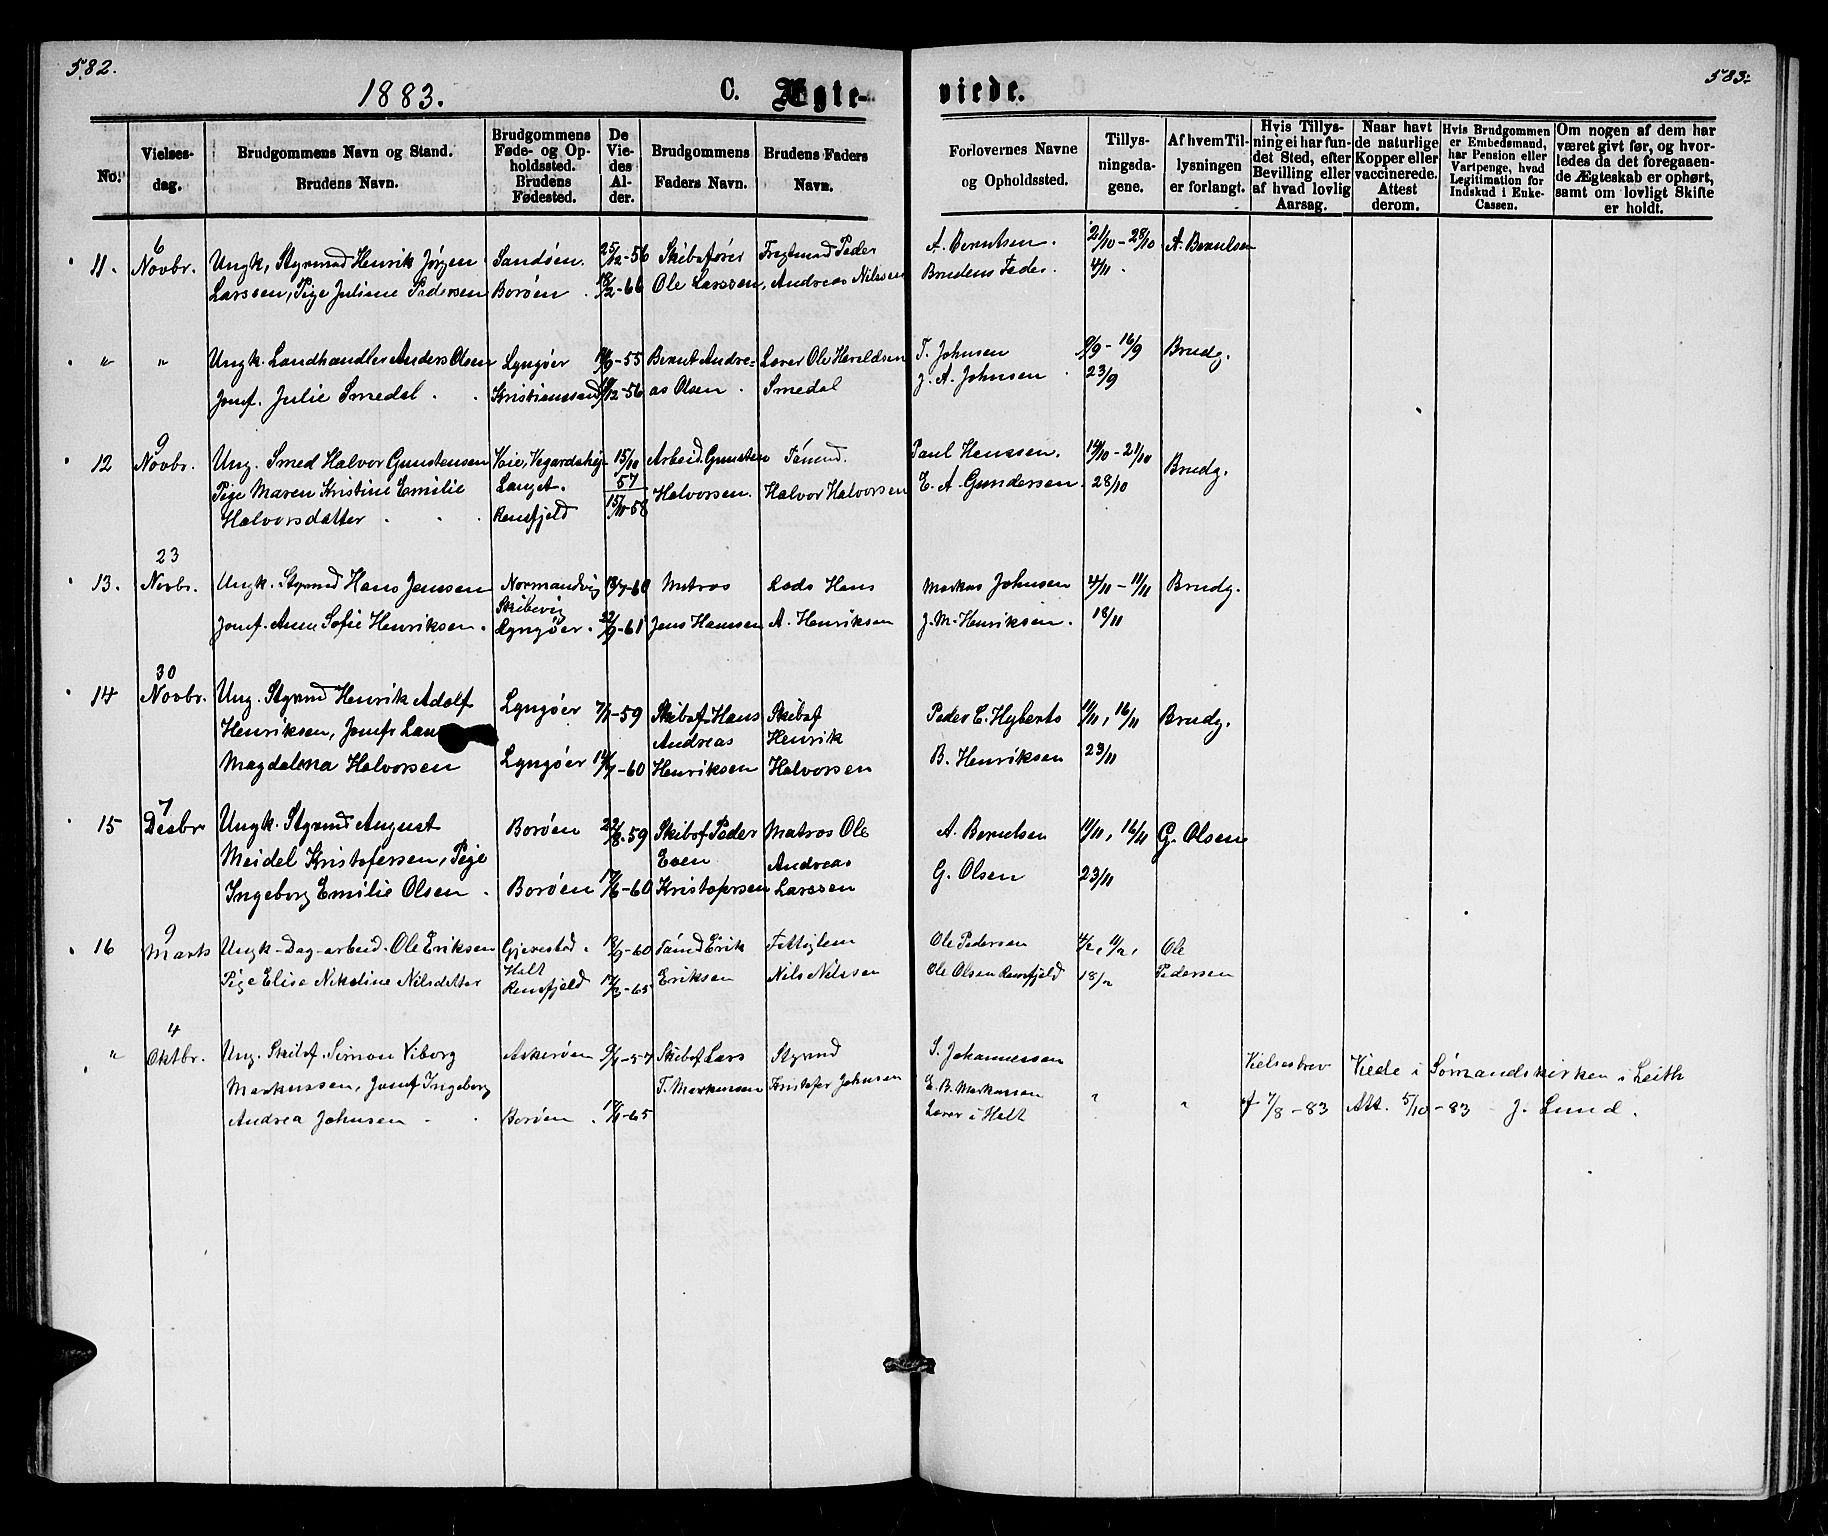 582.
583.
1883.
C. Ægte-
viede.
No.
Vielses-
dag.
Brudgommens Navn og Stand.
Brudens Navn.
Brudgommens
Føde- og Op-
holdssted.
Brudens
Fødested.
De
Vie-
des
Al-
der.
Brudgommens
Faders Navn.
Brudens Faders
Navn.
Forlovernes Navne
og Opholdssted.
Tillys-
ningsda-
gene.
Af hvem Til-
lysningen
er forlangt.
Hvis Tillys-
ning ei har fun-
det Sted, efter
Bevilling eller
af hvad lovlig
Aarsag.
Naar havt
de naturlige
Kopper eller
vaccinerede.
Attest
derom.
Hvis Brudgommen
er Embedsmand,
har Pension eller
Vartpenge, hvad
Legitimation for
Indskud i Enke-
Cassen.
Om nogen af dem har
været givt før, og hvor-
ledes da det foregaaen-
de Ægteskab er ophørt,
samt om lovligt Skifte
er holdt.
6
11. Novbr. Ungk, Styrmd Henrik Jørgen Sandøen. 25/12-56 Skibsfører Fragtmd Peder A. Berntsen. 21/10-28/10 A. Berntsen
Larssen, Pige Juliane Pedersen Borøen. 18/2-66 Ole Larssen, Andreas Nilssen Brudens Fader. 4/11.
" " Ungk. Landhandler Anders Olsen Lyngøer /9-55 Bernt Andre- Lærer Ole Haraldsen T. Johnsen 9/9-16/9 Brudg.
Jomf. Julie Smedal Kristianssand /12-56 as Olsen Smedal J. A. Johnsen 23/9
9
12 Novbr. Ung. Smed Halvor Gunstensen Voie, Vegardshej 15/10 Arbeid. Gunsten Tømmd. Paul Hanssen. 14/10-21/10 Brudg.
Pige Maren Kristine Emilie Langet. 57 Halvorsen. Halvor Halvorsen E. A. Gundersen. 28/10
Halvorsdatter Rensfjeld 15/11-58
23
13. Novbr. Ungk. Styrmd Hans Jensen Normandvig 13/7-60 Matros Lods Hans Markus Johnsen 4/11-11/11 Brudg.
Skibevig
Jomf. Anne Sofie Henriksen. Lyngøer. 22/9-61 Jens Hanssen A. Henriksen J. M. Henriksen. 18/11
30
14 Novbr. Ung. Styrmd Henrik Adolf Lyngøer 7/7-59 Skibsf. Hans Skibsf Peder C. Hyberts 11/11, 16/11 Brudg.
Henriksen, Jomfr Andreas Henrik
Magdalena Halvorsen Lyngøer 14/7-60 Henriksen Halvorsen B. Henriksen 23/11
7
15 Desbr Ungk. Styrmd August Borøen 22/8-59 Skibsf Peder Matros Ole A. Berntsen 11/11, 16/11 G. Olsen
Meidel Kristofersen, Pige Even Andreas
Ingeborg Emilie Olsen. Borøen 17/6-60 Kristofersen Larssen G. Olsen 23/11
9
16 Marts Ungk-Dag-arbeid. Ole Eriksen Gjerestad. 18/9-60 Tømd Erik Fattiglem Ole Pedersen 4/2, 11/2, Ole
Holt
Pige Elise Nikoline Nilsdatter Rensfjeld 17/3-65 Eriksen Nils Nilssen Ole Olsen Rensfjeld 18/2 Pedersen
4
" Oktbr. Ung. Skibsf. Simon Viborg Askerøen 9/1-57 Skibsf Lars Styrmd S. Johannessen Vielsesbrev Viede i Sømandskirken i Leith
Markussen, Jomf Ingeborg T. Markussen Kristofer Johnsen E. B. Markussen
Andrea Johnsen Borøen. 17/1-65 Lærer i Holt " " af 7/8-83 Att. 5/10-83 J. Lund.